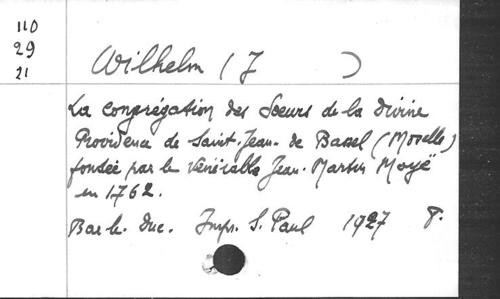 110
29
21
Wilhelm (J )
La Congrégation des Soeurs de la divine
Providence de Saint-Jean-de Bassel (Moselle)
fondée par le Vénérable Jean-Martin Moyë
en 1762.
Bar le. Duc. Impr. S. Paul 1927 8.